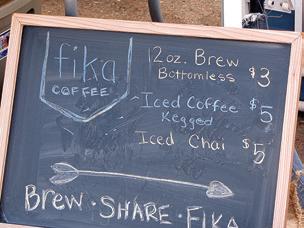 fika
COFFEE
12oz. Brew
Bottomless $3
Iced Coffee $5
Kegged
Iced Chai $5
Brew · SHARE · FIKA